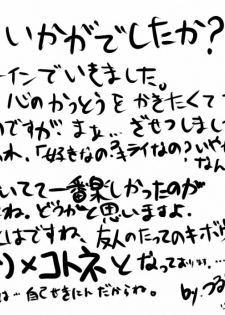 いかがでしたか?
インでいきました。
心のかっとうをかきたくて
のですが、まぁ… ざせつしました
「好きなの?キライなの?いや
なん
いてて一番楽しかったのが
ね。どうがと思いますよ。
はですね、友人のたってのキボウ
×コトネとなっております…
…自己せきにんだからね。
by.つる